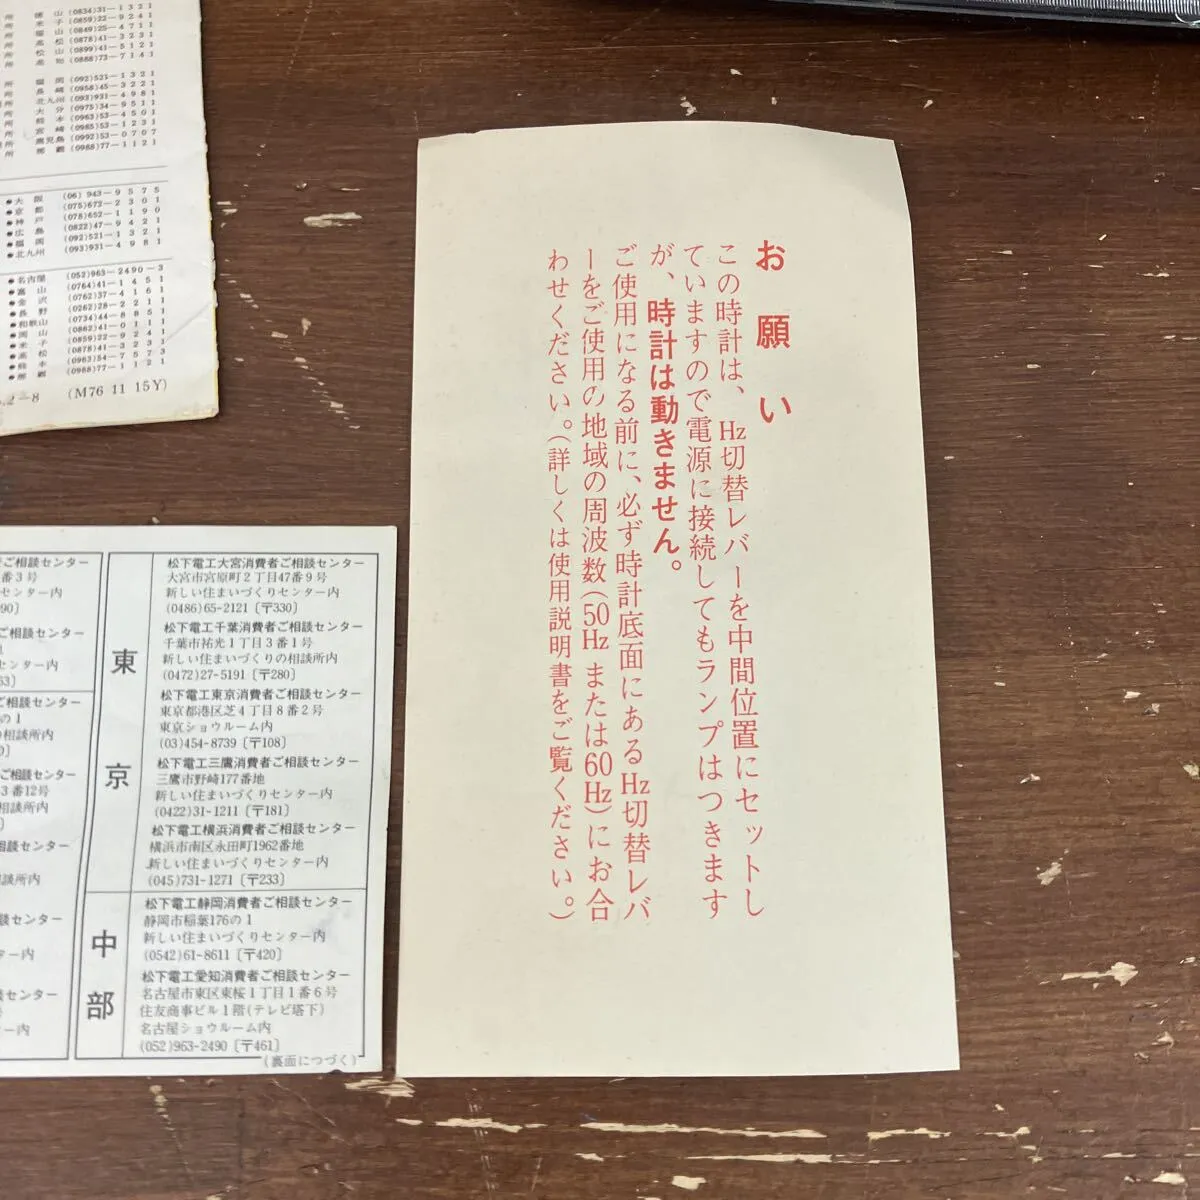 お願い
この時計は、Hz切替レバーを中間位置にセットし
ていますので電源に接続してもランプはつきます
が、時計は動きません。
ご使用になる前に、必ず時計底面にあるHz切替レバ
ーをご使用の地域の周波数(50Hzまたは60Hz)にお合
わせください。(詳しくは使用説明書をご覧ください。)
所 徳山 (0834)31-1321
所 米子 (0859)22-9241
所 福山 (0849)25-4711
所 高松 (0878)41-3231
所 松山 (0899)41-5121
所 高知 (0888)73-7141
所 福岡 (092)521-1321
所 長崎 (0958)45-3221
所 北九州 (093)931-4981
所 大分 (0975)34-9511
所 熊本 (0963)53-4501
所 宮崎 (0985)53-1231
所 鹿児島 (0992)53-0707
所 那覇 (0988)77-1121
●大阪 (06)943-9575
●京都 (075)672-2301
●神戸 (078)652-1190
●広島 (0822)47-9421
●福岡 (092)521-1321
●北九州 (093)931-4981
●名古屋 (052)963-2490-3
●富山 (0764)41-1451
●金沢 (0762)37-4161
●長野 (0262)28-2211
●和歌山 (0734)44-8851
●岡山 (0862)41-0111
●米子 (0859)22-9241
●高松 (0878)41-3231
●熊本 (0963)54-7573
●那覇 (0988)77-1121
.2-8 (M76 11 15Y)
ご相談センター
番3号
センター内
90]
ご相談センター
センター内
63]
ご相談センター
の1
相談所内
ご相談センター
3番12号
相談所内
ご相談センター
談所内
談センター
ター内
談センター
号
ター内
東京
松下電工大宮消費者ご相談センター
大宮市宮原町2丁目47番9号
新しい住まいづくりセンター内
(0486)65-2121〔〒330〕
松下電工千葉消費者ご相談センター
千葉市祐光1丁目3番1号
新しい住まいづくりの相談所内
(0472)27-5191〔〒280〕
松下電工東京消費者ご相談センター
東京都港区芝4丁目8番2号
東京ショウルーム内
(03)454-8739〔〒108〕
松下電工三鷹消費者ご相談センター
三鷹市野崎177番地
新しい住まいづくりセンター内
(0422)31-1211〔〒181〕
松下電工横浜消費者ご相談センター
横浜市南区永田町1962番地
新しい住まいづくりセンター内
(045)731-1271〔〒233〕
中部
松下電工静岡消費者ご相談センター
静岡市稲葉176の1
新しい住まいづくりセンター内
(0542)61-8611〔〒420〕
松下電工愛知消費者ご相談センター
名古屋市東区東桜1丁目1番6号
住友商事ビル1階(テレビ塔下)
名古屋ショウルーム内
(052)963-2490〔〒461〕
(裏面につづく)